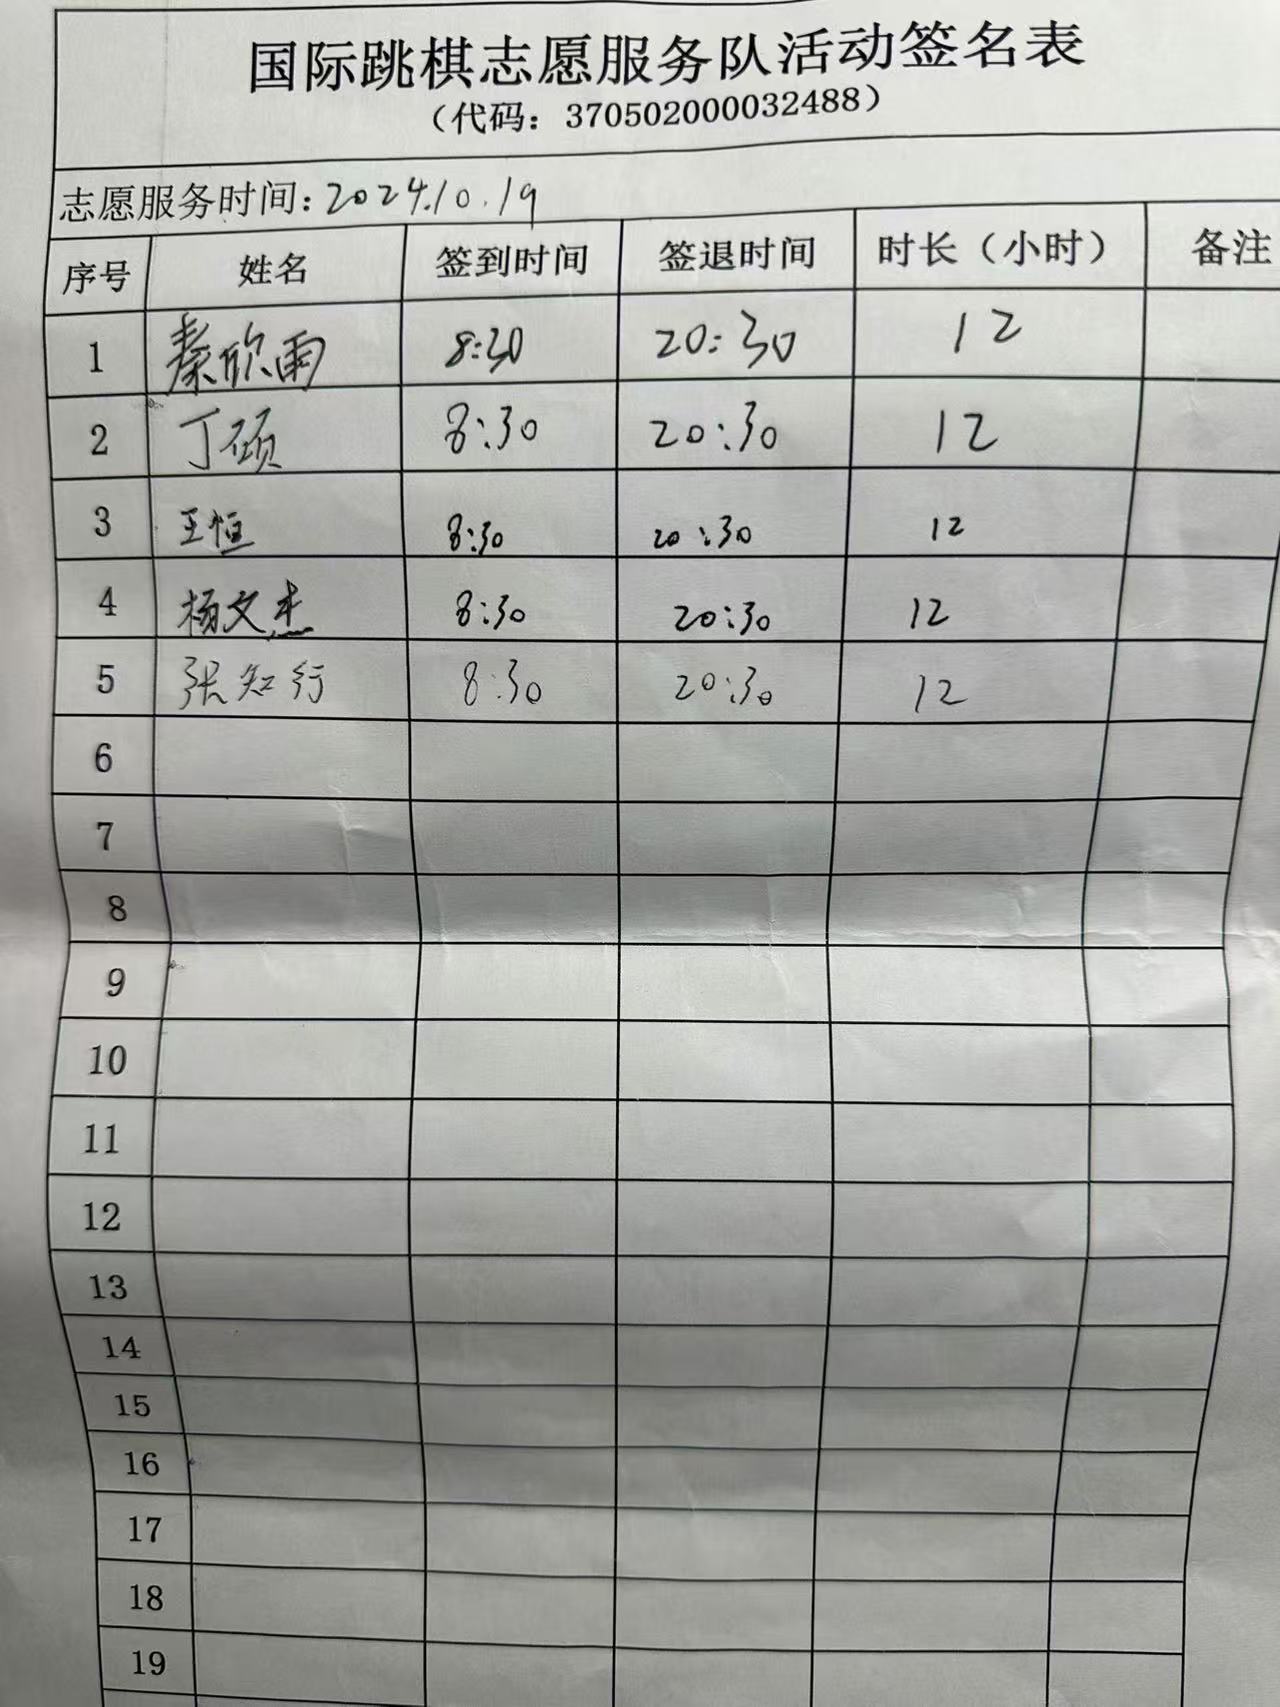 国际跳棋志愿服务队活动签名表
（代码：370502000032488）
志愿服务时间：2024.10.19
序号 姓名 签到时间 签退时间 时长（小时） 备注
1 秦欣雨 8:30 20:30 12
2 丁硕 8:30 20:30 12
3 王恒 8:30 20:30 12
4 杨文杰 8:30 20:30 12
5 张知行 8:30 20:30 12
6
7
8
9
10
11
12
13
14
15
16
17
18
19